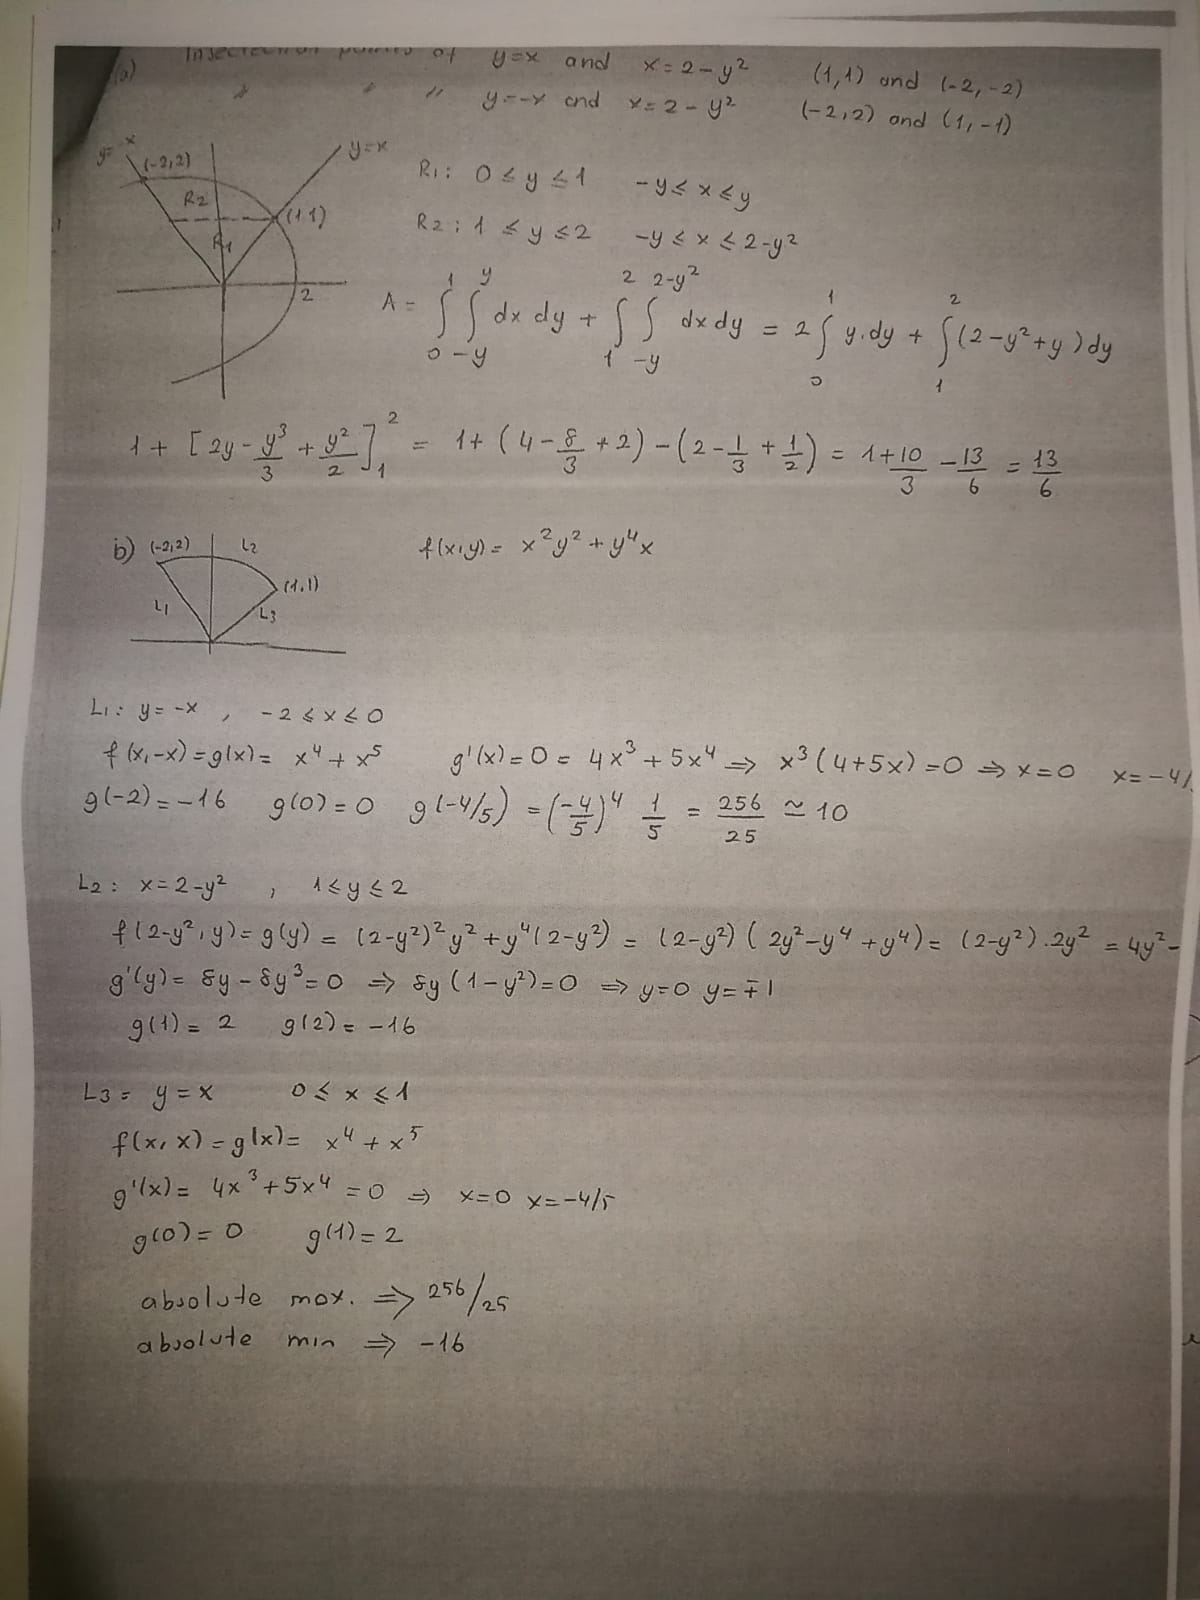 (a) Insectection points of y=x and x=2-y² (1,1) and (-2,-2)
" " " y=-x and x=2-y² (-2,2) and (1,-1)
y=-x
(-2,2)
y=x
R2
(1,1)
R1
2
R1: 0≤y≤1 -y≤x≤y
R2: 1≤y≤2 -y≤x≤2-y²
A = ∫₀¹ ∫₋ᵧʸ dx dy + ∫₁² ∫₋ᵧ^(2-y²) dx dy = 2∫₀¹ y.dy + ∫₁² (2-y²+y)dy
1 + [2y - y³/3 + y²/2]₁² = 1+(4-8/3+2)-(2-1/3+1/2) = 1+10/3 - 13/6 = 13/6
b) (-2,2) L2
(1,1)
L1
L3
f(x,y) = x²y²+y⁴x
L1: y=-x , -2≤x≤0
f(x,-x)=g(x)= x⁴+x⁵ g'(x)=0= 4x³+5x⁴ ⇒ x³(4+5x)=0 ⇒ x=0 x=-4/
g(-2)=-16 g(0)=0 g(-4/5) = (-4/5)⁴ 1/5 = 256/25 ≃ 10
L2: x=2-y² , 1≤y≤2
f(2-y²,y)=g(y) = (2-y²)²y²+y⁴(2-y²) = (2-y²)(2y²-y⁴+y⁴)= (2-y²).2y² = 4y²-
g'(y)= 8y-8y³=0 ⇒ 8y(1-y²)=0 ⇒ y=0 y=∓1
g(1)=2 g(2)=-16
L3= y=x 0≤x≤1
f(x,x)=g(x)= x⁴+x⁵
g'(x)= 4x³+5x⁴=0 ⇒ x=0 x=-4/5
g(0)=0 g(1)=2
absolute max. ⇒ 256/25
absolute min ⇒ -16